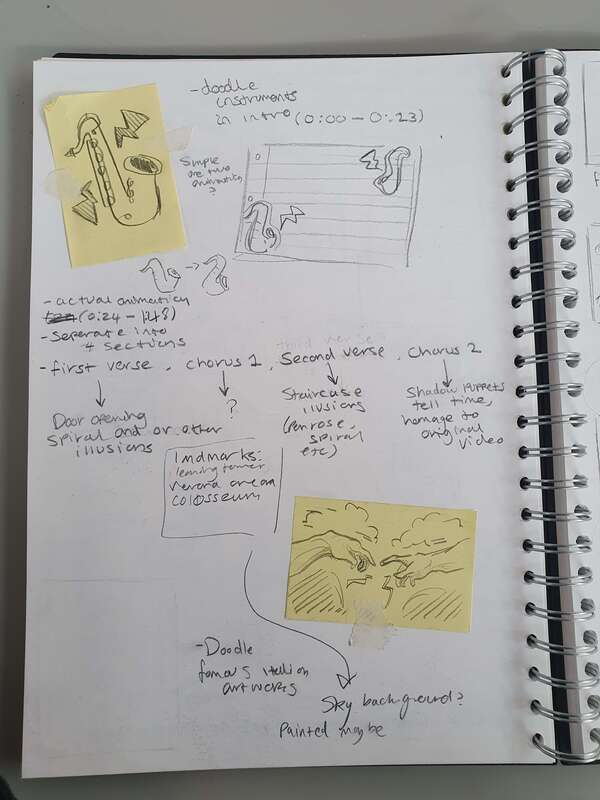 -doodle
instruments
in intro (0:00 - 0:23)
Simple
line two
animation
?
-actual animation
(0:24 - 1:48)
-Seperate into
4 sections
-first verse, chorus 1, Second verse, Chorus 2
third verse
Door opening
spiral and or other
illusions
?
Staircase
illusions
(penrose,
spiral
etc)
Shadow puppets
tell time,
homage to
original
video
landmarks:
leaning tower
verona arena
colosseum
-Doodle
famous italian
artworks
Sky background?
Painted maybe